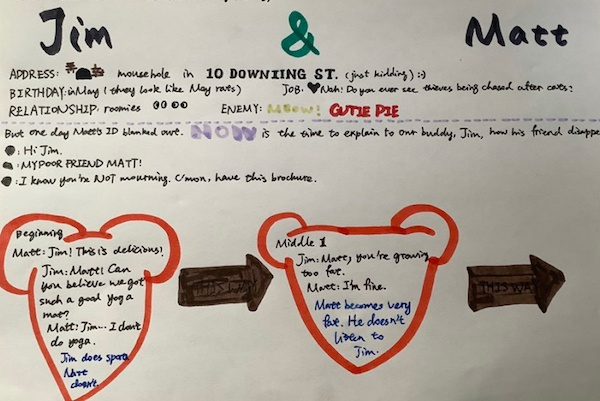 Jim & Matt
ADDRESS: mousehole in 10 DOWNIING ST. (just kidding) :-)
BIRTHDAY: in May (they look like May rats) JOB: Nah! Do you ever see thieves being chased after cats?
RELATIONSHIP: roomies ENEMY: Meow! CUTIE PIE
But one day Matt's ID blanked out. NOW is the time to explain to our buddy, Jim, how his friend disappe
: Hi Jim.
: MY POOR FRIEND MATT!
: I know you're NOT mourning. C'mon, have this brochure.
Beginning
Matt: Jim! This is delicious!
Jim: Matt! Can
you believe we got
such a good yoga
mat?
Matt: Jim... I don't
do yoga.
Jim does sports
Matt
doesn't.
THIS WAY
Middle 1
Jim: Matt, you're growing
too fat.
Matt: I'm fine.
Matt becomes very
fat. He doesn't
listen to
Jim.
THIS WAY